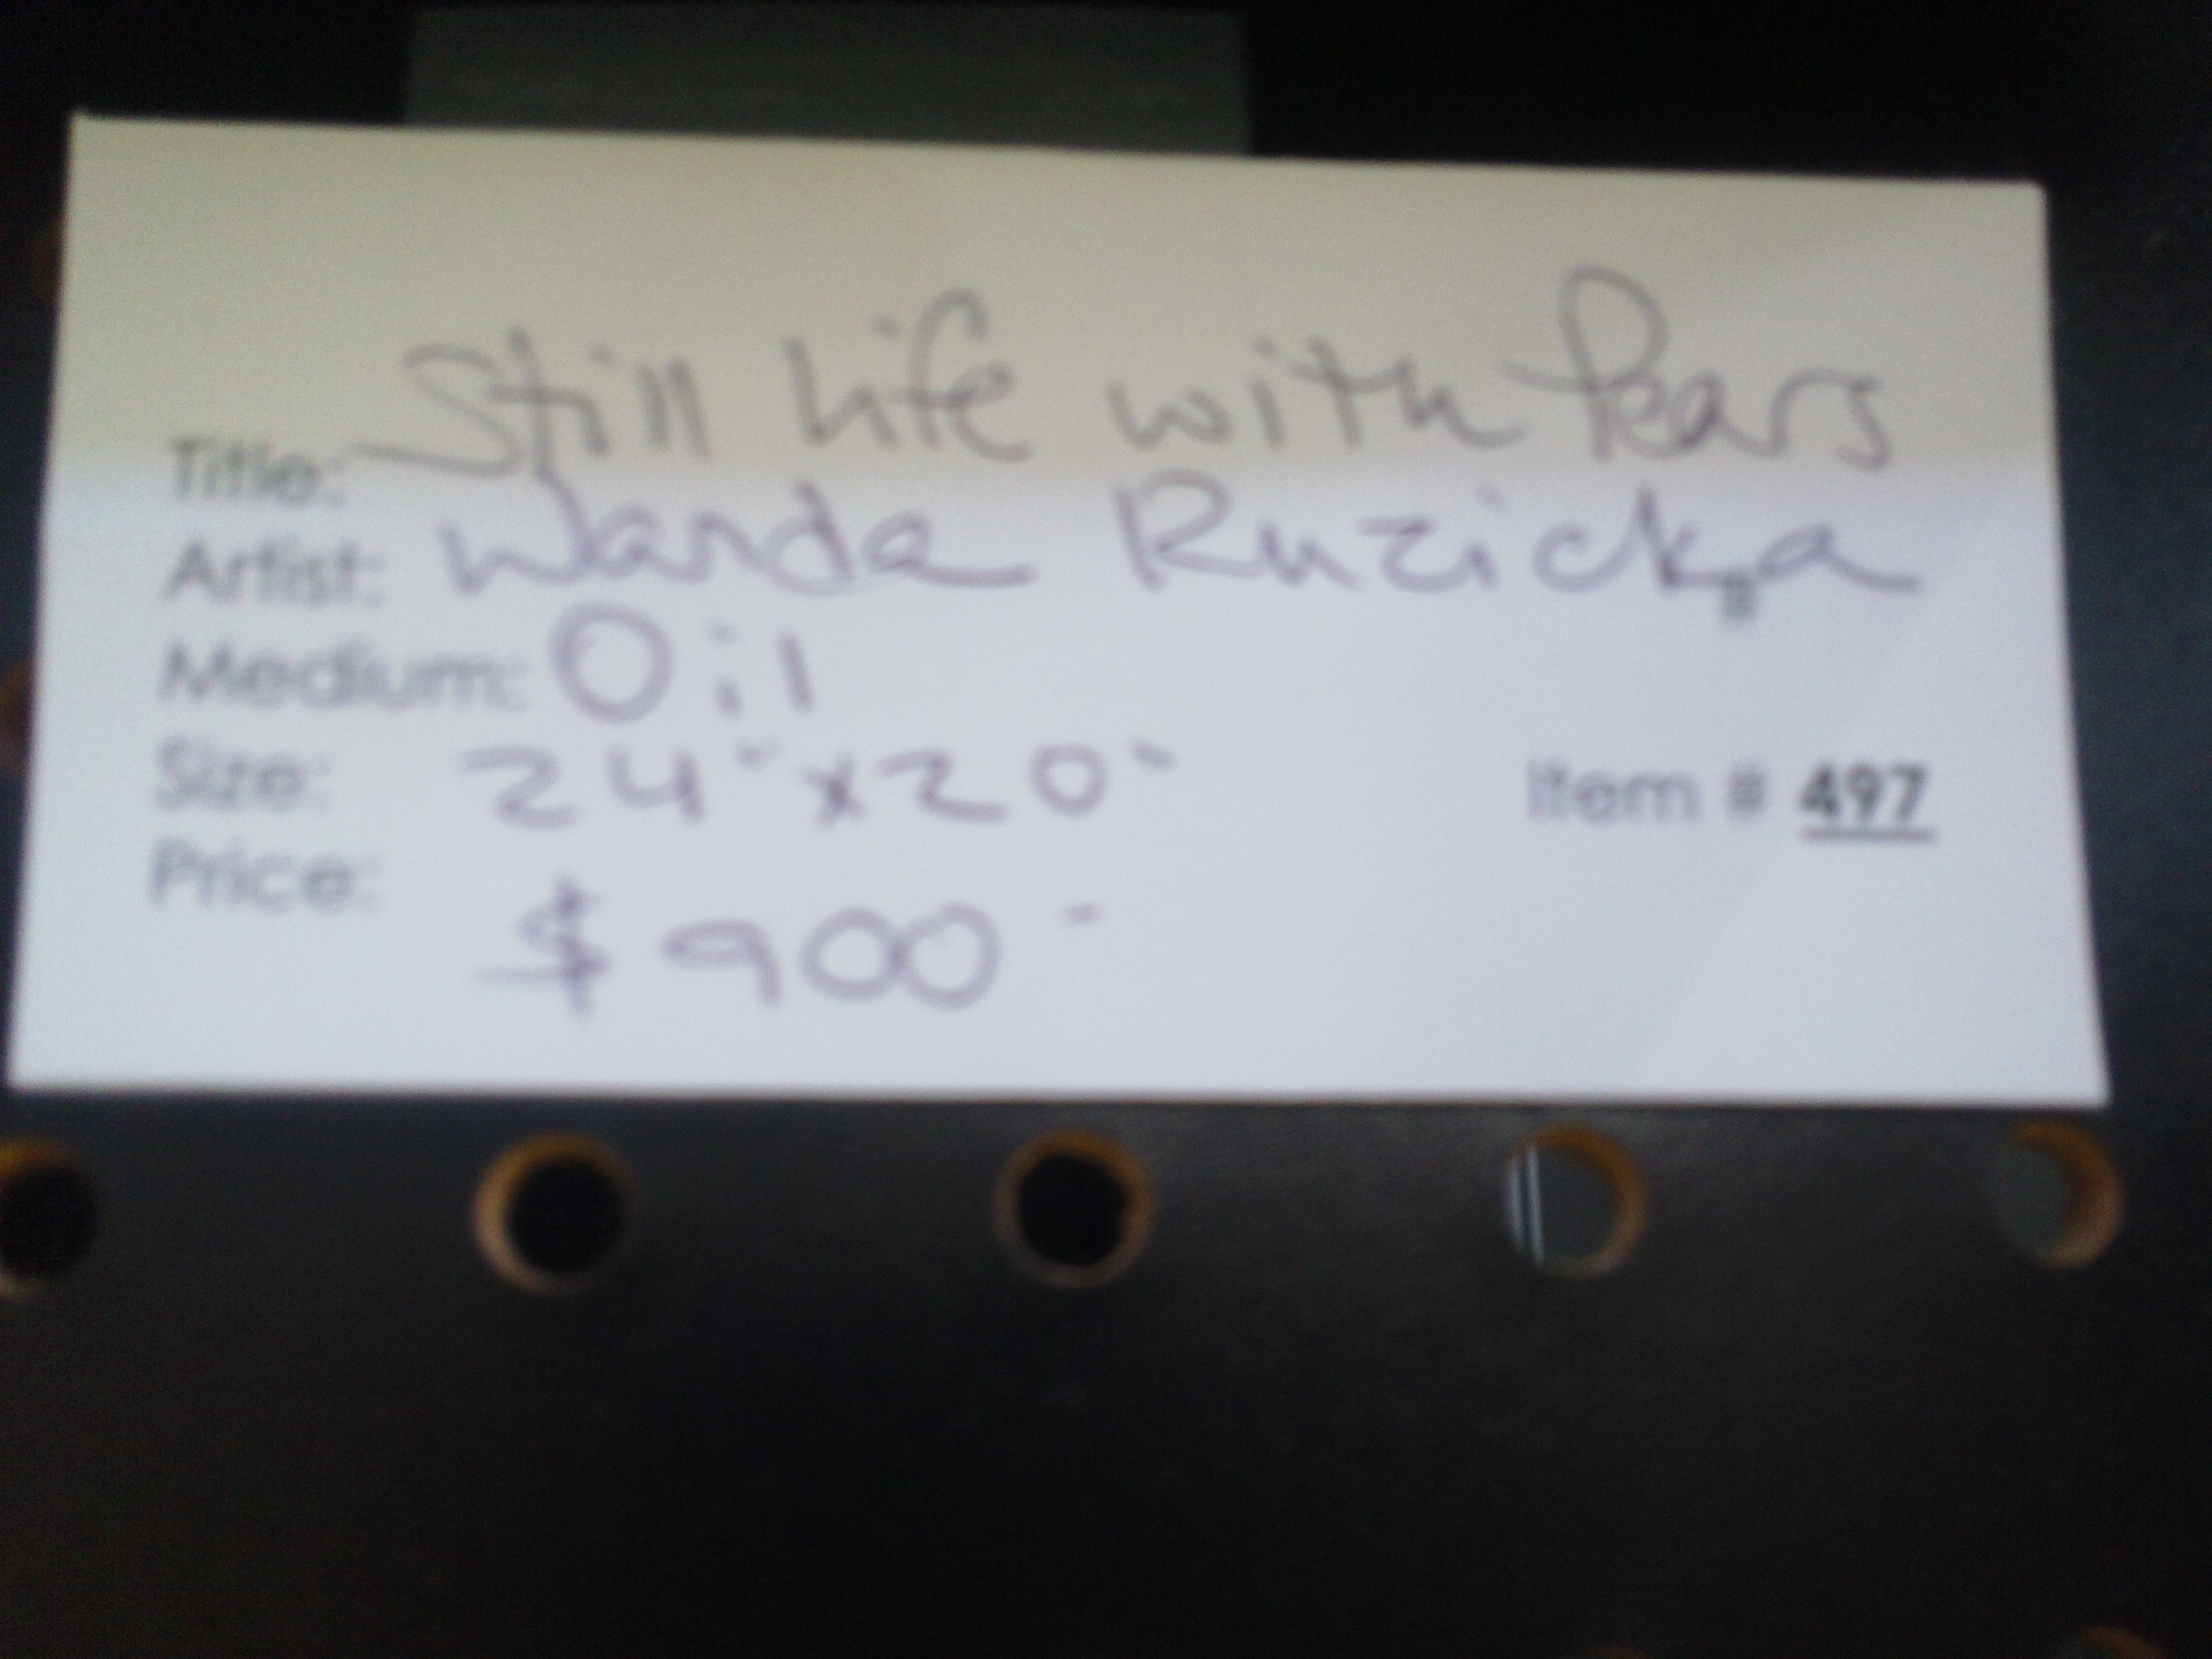 Title: Still life with Pears
Artist: Wanda Ruzicka
Medium: Oil
Size: 24" x 20"
Item # 497
Price: $900-